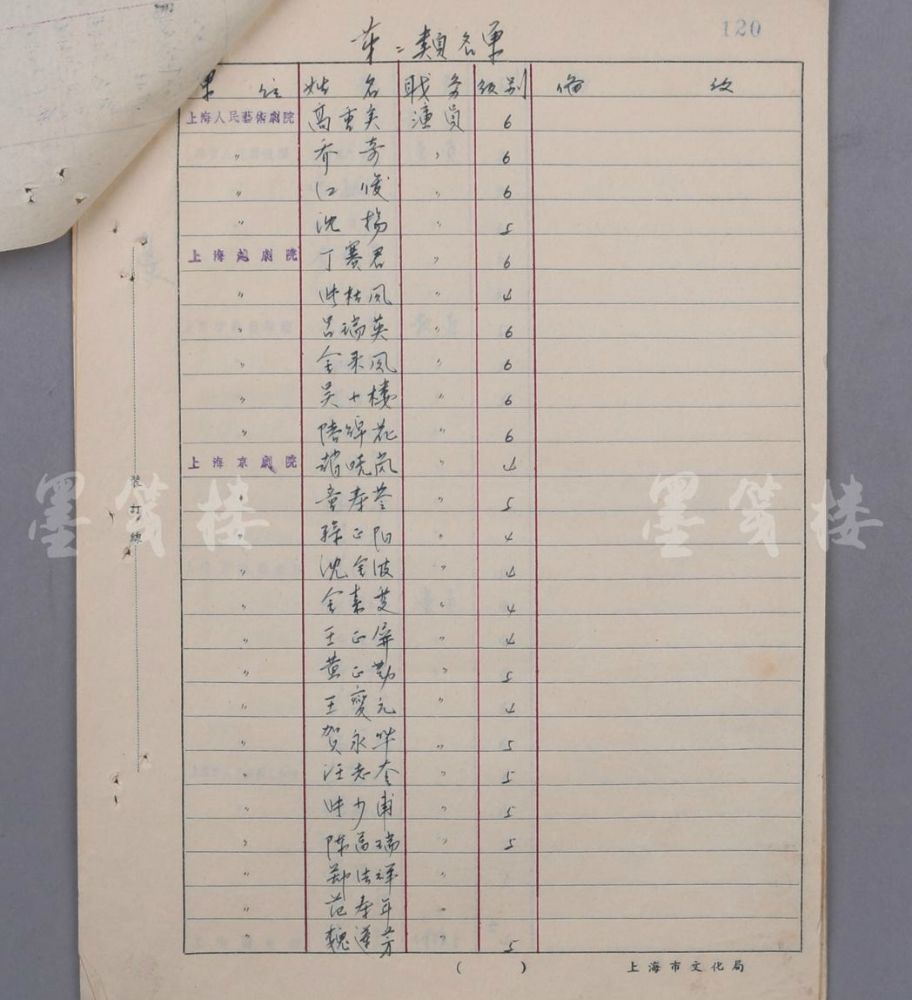 120
第二類名單
單位 姓名 職务 级别 備攷
上海人民藝術劇院 高重美 演員 6
〃 乔奇 〃 6
〃 江俊 〃 6
〃 沈揚 〃 5
上海越劇院 丁賽君 〃 6
〃 〃 4
〃 吕瑞英 〃 6
〃 金采风 〃 6
〃 吴小楼 〃 6
〃 陆锦花 〃 6
上海京劇院 趙晓岚 〃 4
〃 童寿苓 〃 5
〃 孫正阳 〃 4
〃 沈金波 〃 4
〃 金素雯 〃 4
〃 王正屏 〃 4
〃 黄正勤 〃 5
〃 王燮元 〃 4
〃 贺永华 〃 5
〃 汪志奎 〃 5
〃 〃 5
〃 陈昌瑞 〃 5
〃 郑法祥 〃
〃 范寿年 〃
〃 魏蓮芳 〃 5
裝訂線
( ) 上海市文化局
墨笈楼 墨笈楼